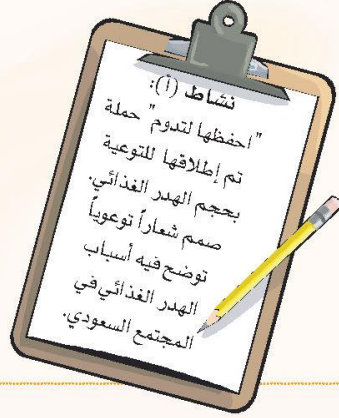 نشاط (أ):
"احفظها لتدوم" حملة
تم إطلاقها للتوعية
بحجم الهدر الغذائي.
صمم شعاراً توعوياً
توضح فيه أسباب
الهدر الغذائي في
المجتمع السعودي.